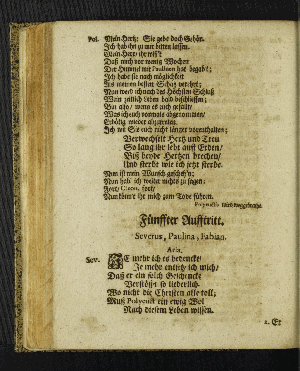 Pol. Mein Hertz! Sie gebe doch Gehör.
Ich hab ihn zu mir bitten lassen.
Mein Herr/ ihr wißt
Daß mich vor wenig Wochen
Der Himmel mit Paulinen hat begabt;
Ich habe sie nach möglichkeit
Als meinen besten Schatz verehrt;
Nun werd ich nach des Höchsten Schluß
Mein zeitlich Leben bald beschliessen;
Nun also/ wenn es euch gefällt/
Was ich euch vormals abgenommen/
Erbötig wieder abzutreten.
Ich will Sie euch nicht länger vorenthalten;
Verwechselt Hertz und Treu
So lang ihr lebt auff Erden/
Biß beyde Hertzen brechen/
Und sterbt wie ich jetzt sterbe.
Nun ist mein Wunsch geschehn;
Nun hab ich weiter nichts zu sagen;
Fort/ Cleon, fort/
Nun könnt ihr mich zum Tode führen.
Polyeuctus wird weggebracht.
Fünffter Aufftritt.
Severus, Paulina, Fabian.
Aria.
Sev. JE mehr ich es bedencke/
Je mehr entsetz ich mich/
Daß er ein solch Geschencke
Verstösst so liederlich.
Wo nicht die Christen alle toll;
Muß Polyeuct ein ewig Wol
Nach diesem Leben wissen.
2. Er